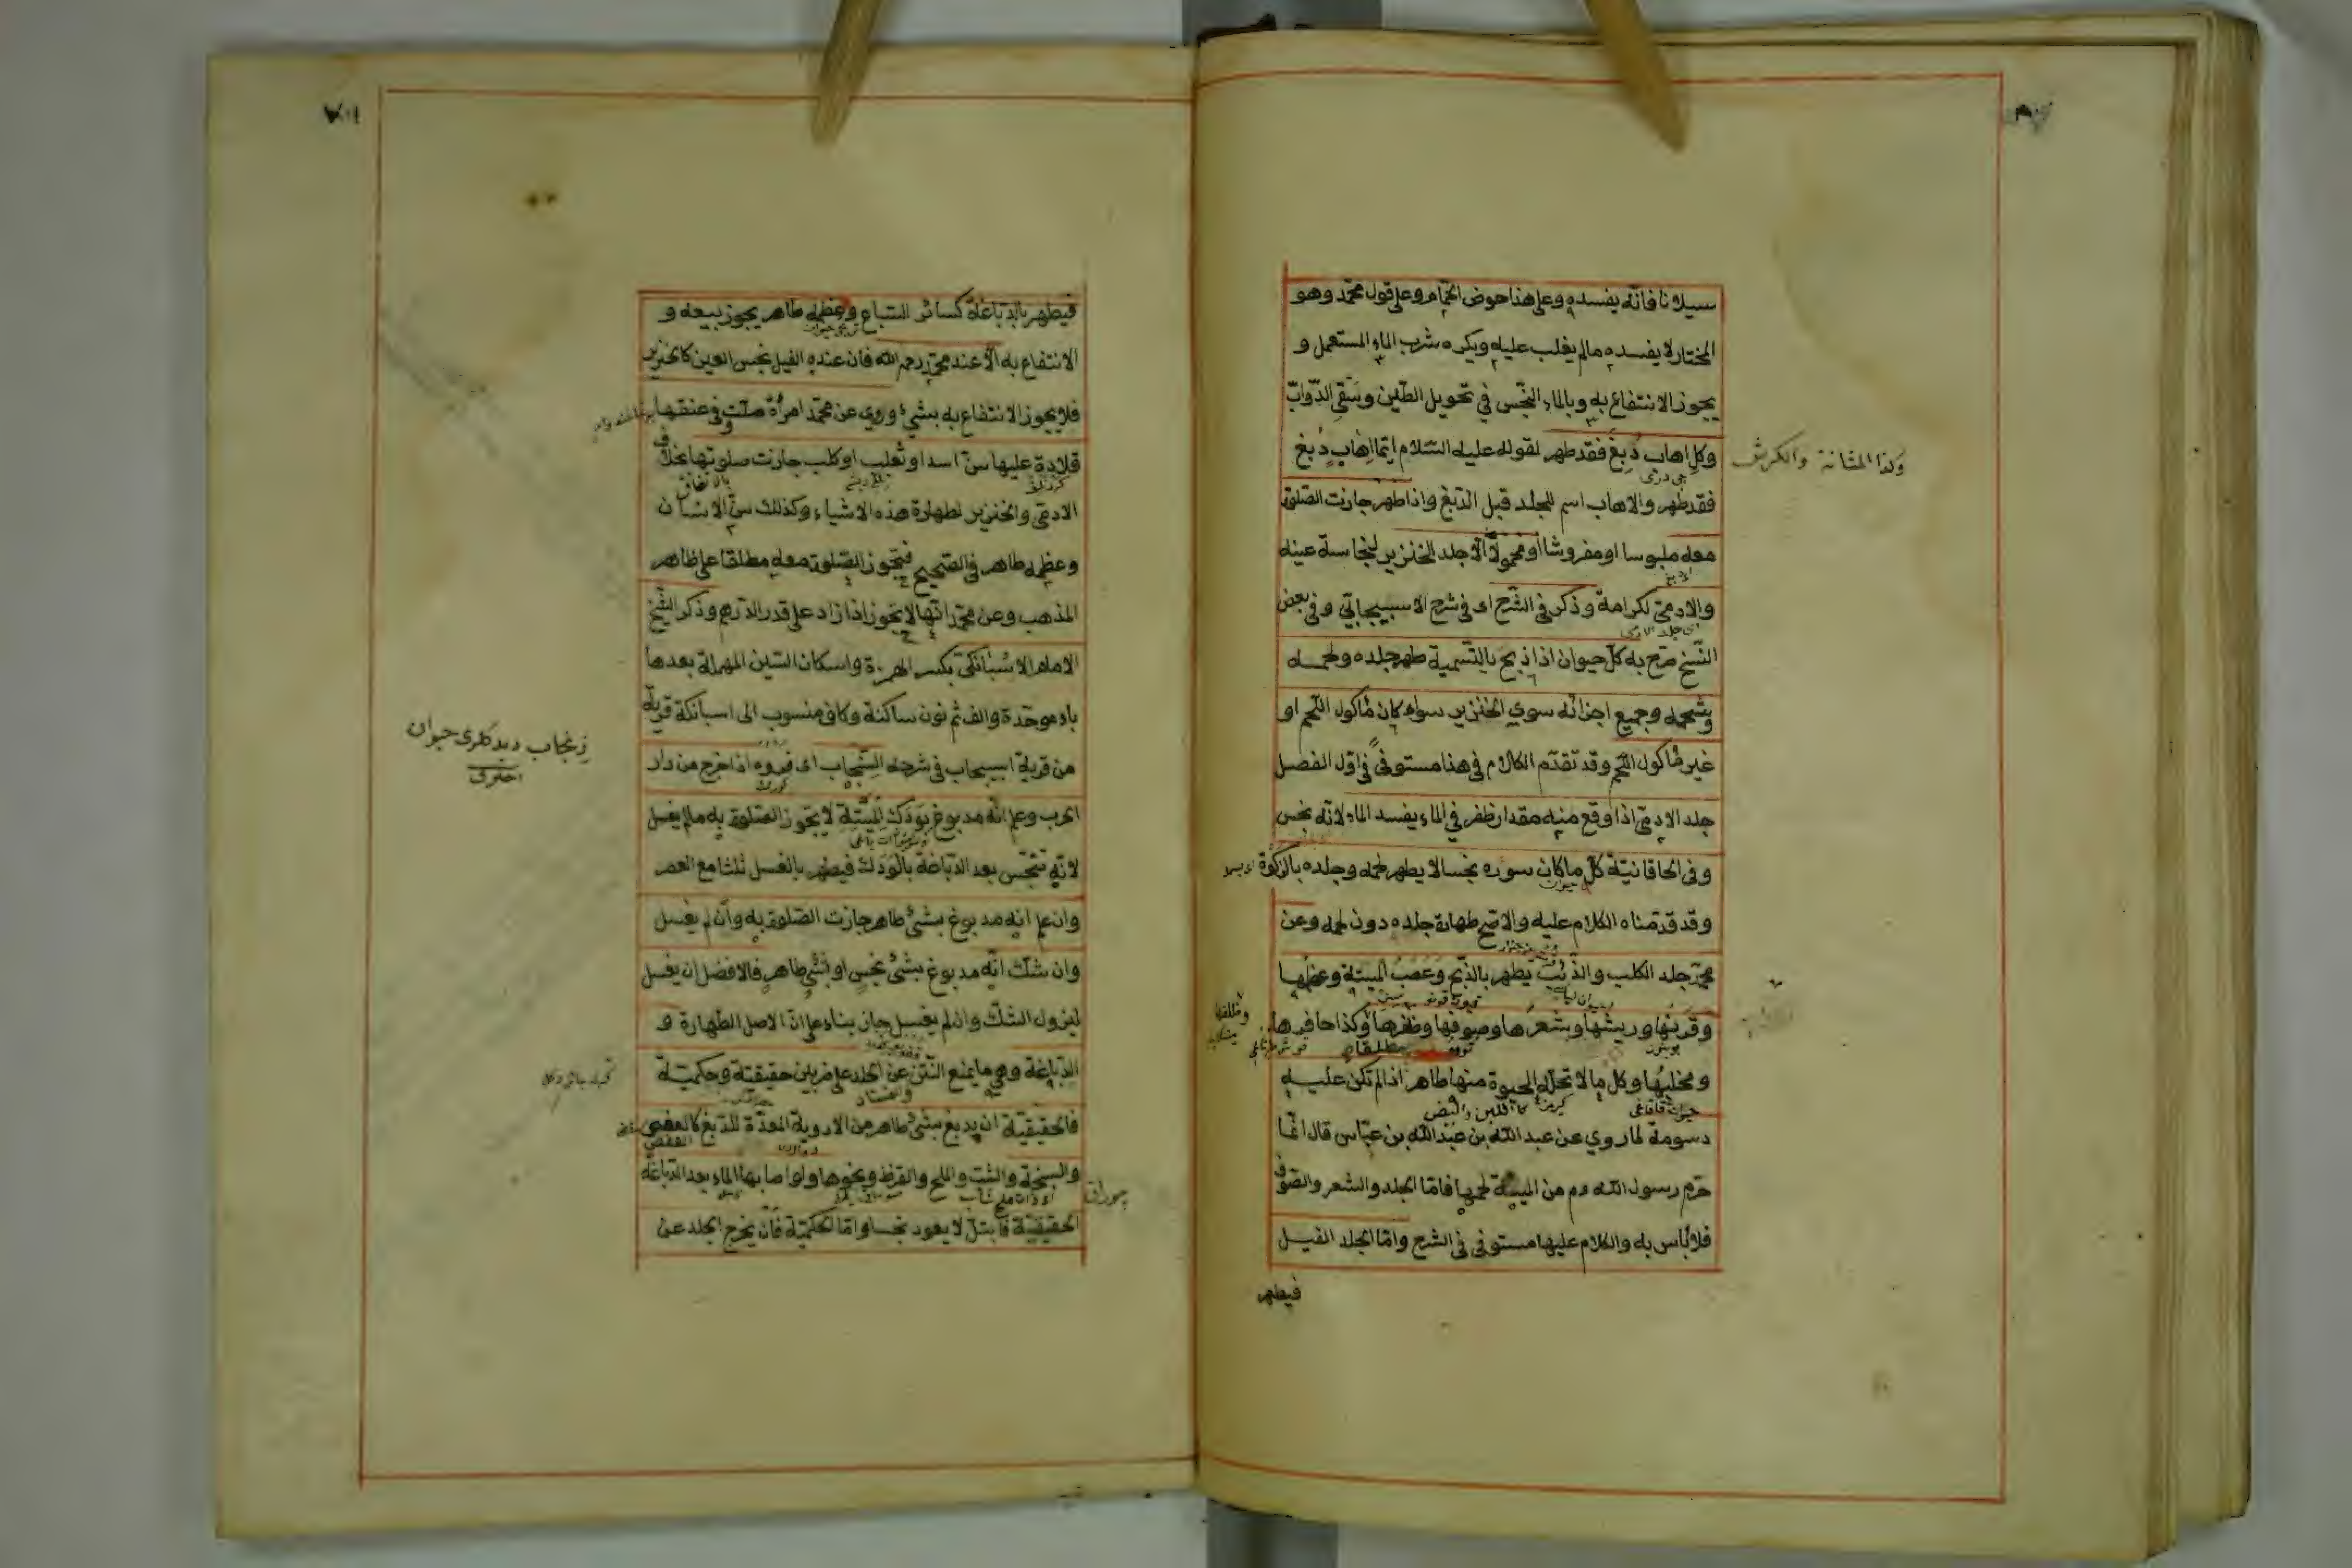 سيلانا فانّه يفسده وعلى هذا حوض الحمّام وعلى قول محمّد وهو
المختار لا يفسده مالم يغلب عليه ويكره شرب الماء المستعمل و
يجوز الانتفاع به وبالماء النجّس في تحويل الطّين وسقي الدّوابّ
وكل اهاب دُبِغَ فقد طهر لقوله عليه السّلام ايّما اِهاب دُبغ
وكذا المثانة والكرش
فقد طهر والاهاب اسم للجلد قبل الدّبغ واذا طهر جازت الصّلوة
معه ملبوسا او مفروشا او محمولا الّا جلد الخنزير لنجاسة عينه
والادمىّ لكرامة وذكر في الشّرح اى في شرح الاسبيجابىّ وفى بعض
اى جلد الادمى
النّسخ صرّح به كلّ حيوان اذا ذبح بالتّسمية طهر جلده ولحمه
وشحمه وجميع اجزائه سوي الخنزير سواء كان مأكول اللّحم او
غير مأكول اللّحم وقد تقدّم الكلام في هذا مستوفىً في اوّل الفصل
جلد الادمىّ اذا وقع منه مقدار ظفر في الماء يفسد الماء لانّه نجس
وفى الخاقانيّة كلّ ماكان سوره نجسا لا يطهر لحمه وجلده بالزكوة
وقد قدّمناه الكلام عليه والاصّح طهارة جلده دون لحمه وعن
محمّد جلد الكلب والذّئب يطهر بالذّبح وعَصَبُ الميتة وعظمها
وظلفها
وقَرْنُها وريشها وشعرُها وصوفها وظفرها وكذا حافرها
مطلقا
ومخلبُها وكل ما لا تحلّه الحيوة منها طاهر اذا لم تكن عليه
كاللبن والبيض
دسومة لما روي عن عبد اللّه بن عَبْد اللّه بن عبّاس قال انّما
حرّم رسول اللّه عم من الميتة لحمها فامّا الجلد والشعر والصّوف
فلا بأس به والكلام عليها مستوفى في الشرح وامّا الجلد الفيل
فيطهر
فيطهر بالدّباغة كسائر السّباع وعظمه طاهر يجوز بيعه و
الانتفاع به الّا عند محمّد رحمه الله فان عنده الفيل نجس العين كالخنزير
فلا يجوز الانتفاع به بشيء وروي عن محمّد امرأة صلّت وفى عنقها
قلادة عليها سنّ اسد او ثعلب او كلب جازت صلوتها بخلاف
بالاتفاق
الادمىّ والخنزير لطهارة هذه الاشياء وكذلك سنّ الانسان
وعظمه طاهر في الصّحيح فتجوز الصّلوة معه مطلقا على ظاهر
المذهب وعن محمّد انّها لا يجوز اذا زاد على قدر الدّرهم وذكر الشّيخ
الامام الاسْبَانكىّ بكسر الهمزة واسكان السّين المهملة بعدها
باء موحّدة والف ثم نون ساكنة وكاف منسوب الى اسبانكة قرية
من قرية اسبيجاب في شرحه السّنجاب اى فروه اذا خرج من دار
زنجاب ديدكلرى حيوان
الحرب وعلم انّه مدبوغ بوَدَك الميّتة لا يجوز الصّلوة به مالم يغسل
لانّه تنجّس بعد الدّباغة بالوَدَك فيطهر بالغسل ثلثا مع العصر
وان علم انه مدبوغ بشىء طاهر جازت الصّلوة به وان لم يغسل
وان شكّ انّه مدبوغ بشىء نجس او بشىء طاهر فالافضل ان يغسل
ليزول الشكّ وان لم يغسل جاز بناء على انّ الاصل الطّهارة و
الدّباغة وهي ما يمنع النّتن عن الجلد على ضربين حقيقيّة وحكميّة
والفساد
فالحقيقيّة ان يدبغ بشىء طاهر من الادوية المعدّة للدّبغ كالعفص
العفص
والسبخة والشبّ والملح والقرظ ونحوها ولو اصابها الماء بعد الدّباغة
الحقيقيّة فابتلّ لا يعود نجسا وامّا الحكميّة فان يخرج الجلد عن